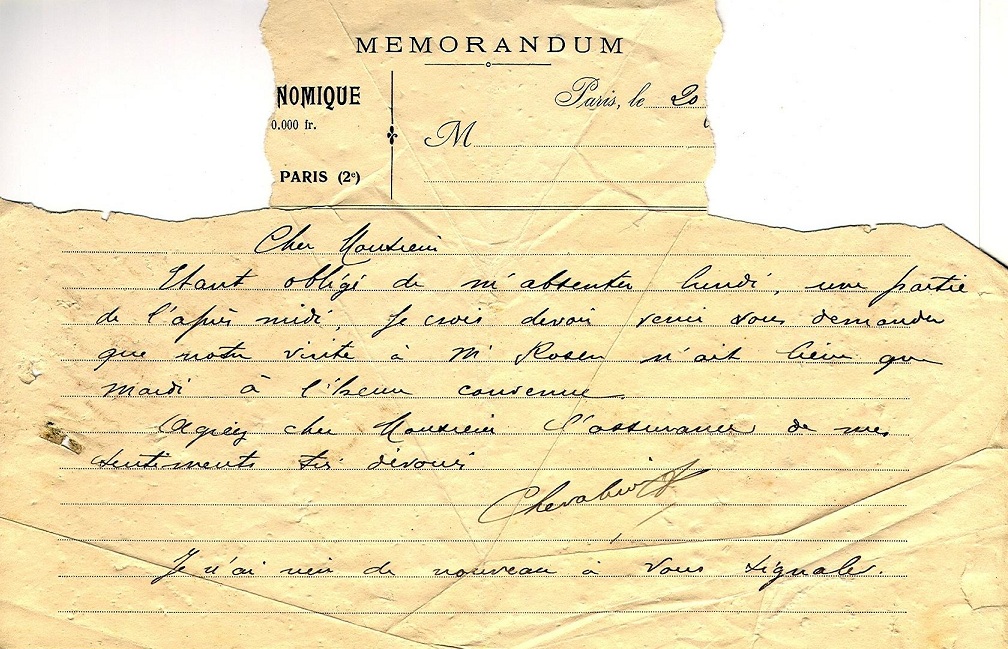 MEMORANDUM
NOMIQUE
0.000 fr.
PARIS (2e)
Paris, le 20
M
Cher Monsieur
Etant obligé de m'absenter lundi, une partie
de l'après midi, je crois devoir venir vous demander
que notre visite à Mr Rosen n'ait lieu que
mardi à l'heure convenue.
Agréez cher Monsieur l'assurance de mes
sentiments très dévoués
Chevalier
Je n'ai rien de nouveau à vous signaler.